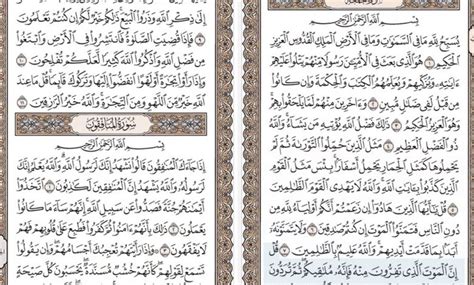 سُورَةُ الجُمُعَةِ
بِسْمِ ٱللَّهِ ٱلرَّحْمَٰنِ ٱلرَّحِيمِ
يُسَبِّحُ لِلَّهِ مَا فِي ٱلسَّمَٰوَٰتِ وَمَا فِي ٱلْأَرْضِ ٱلْمَلِكِ ٱلْقُدُّوسِ ٱلْعَزِيزِ
ٱلْحَكِيمِ ١ هُوَ ٱلَّذِي بَعَثَ فِي ٱلْأُمِّيِّـۧنَ رَسُولًا مِّنْهُمْ يَتْلُوا۟ عَلَيْهِمْ
ءَايَٰتِهِۦ وَيُزَكِّيهِمْ وَيُعَلِّمُهُمُ ٱلْكِتَٰبَ وَٱلْحِكْمَةَ وَإِن كَانُوا۟
مِن قَبْلُ لَفِي ضَلَٰلٍ مُّبِينٍ ٢ وَءَاخَرِينَ مِنْهُمْ لَمَّا يَلْحَقُوا۟ بِهِمْ
وَهُوَ ٱلْعَزِيزُ ٱلْحَكِيمُ ٣ ذَٰلِكَ فَضْلُ ٱللَّهِ يُؤْتِيهِ مَن يَشَآءُ وَٱللَّهُ
ذُو ٱلْفَضْلِ ٱلْعَظِيمِ ٤ مَثَلُ ٱلَّذِينَ حُمِّلُوا۟ ٱلتَّوْرَىٰةَ ثُمَّ لَمْ
يَحْمِلُوهَا كَمَثَلِ ٱلْحِمَارِ يَحْمِلُ أَسْفَارًۢا بِئْسَ مَثَلُ ٱلْقَوْمِ
ٱلَّذِينَ كَذَّبُوا۟ بِـَٔايَٰتِ ٱللَّهِ وَٱللَّهُ لَا يَهْدِي ٱلْقَوْمَ ٱلظَّٰلِمِينَ
٥ قُلْ يَٰٓأَيُّهَا ٱلَّذِينَ هَادُوٓا۟ إِن زَعَمْتُمْ أَنَّكُمْ أَوْلِيَآءُ لِلَّهِ
مِن دُونِ ٱلنَّاسِ فَتَمَنَّوُا۟ ٱلْمَوْتَ إِن كُنتُمْ صَٰدِقِينَ ٦ وَلَا يَتَمَنَّوْنَهُۥٓ
أَبَدًۢا بِمَا قَدَّمَتْ أَيْدِيهِمْ وَٱللَّهُ عَلِيمٌۢ بِٱلظَّٰلِمِينَ ٧ قُلْ
إِنَّ ٱلْمَوْتَ ٱلَّذِي تَفِرُّونَ مِنْهُ فَإِنَّهُۥ مُلَٰقِيكُمْ ثُمَّ تُرَدُّونَ
إِلَىٰ ذِكْرِ ٱللَّهِ وَذَرُوا۟ ٱلْبَيْعَ ذَٰلِكُمْ خَيْرٌ لَّكُمْ إِن كُنتُمْ تَعْلَمُونَ
٩ فَإِذَا قُضِيَتِ ٱلصَّلَوٰةُ فَٱنتَشِرُوا۟ فِي ٱلْأَرْضِ وَٱبْتَغُوا۟
مِن فَضْلِ ٱللَّهِ وَٱذْكُرُوا۟ ٱللَّهَ كَثِيرًا لَّعَلَّكُمْ تُفْلِحُونَ ١٠
وَإِذَا رَأَوْا۟ تِجَٰرَةً أَوْ لَهْوًا ٱنفَضُّوٓا۟ إِلَيْهَا وَتَرَكُوكَ قَآئِمًا قُلْ مَا عِندَ
ٱللَّهِ خَيْرٌ مِّنَ ٱللَّهْوِ وَمِنَ ٱلتِّجَٰرَةِ وَٱللَّهُ خَيْرُ ٱلرَّٰزِقِينَ ١١
سُورَةُ المُنَافِقُونَ
بِسْمِ ٱللَّهِ ٱلرَّحْمَٰنِ ٱلرَّحِيمِ
إِذَا جَآءَكَ ٱلْمُنَٰفِقُونَ قَالُوا۟ نَشْهَدُ إِنَّكَ لَرَسُولُ ٱللَّهِ وَٱللَّهُ يَعْلَمُ إِنَّكَ
لَرَسُولُهُۥ وَٱللَّهُ يَشْهَدُ إِنَّ ٱلْمُنَٰفِقِينَ لَكَٰذِبُونَ ١ ٱتَّخَذُوٓا۟
أَيْمَٰنَهُمْ جُنَّةً فَصَدُّوا۟ عَن سَبِيلِ ٱللَّهِ إِنَّهُمْ سَآءَ مَا كَانُوا۟ يَعْمَلُونَ
٢ ذَٰلِكَ بِأَنَّهُمْ ءَامَنُوا۟ ثُمَّ كَفَرُوا۟ فَطُبِعَ عَلَىٰ قُلُوبِهِمْ فَهُمْ
لَا يَفْقَهُونَ ٣ وَإِذَا رَأَيْتَهُمْ تُعْجِبُكَ أَجْسَامُهُمْ وَإِن يَقُولُوا۟
تَسْمَعْ لِقَوْلِهِمْ كَأَنَّهُمْ خُشُبٌ مُّسَنَّدَةٌ يَحْسَبُونَ كُلَّ صَيْحَةٍ